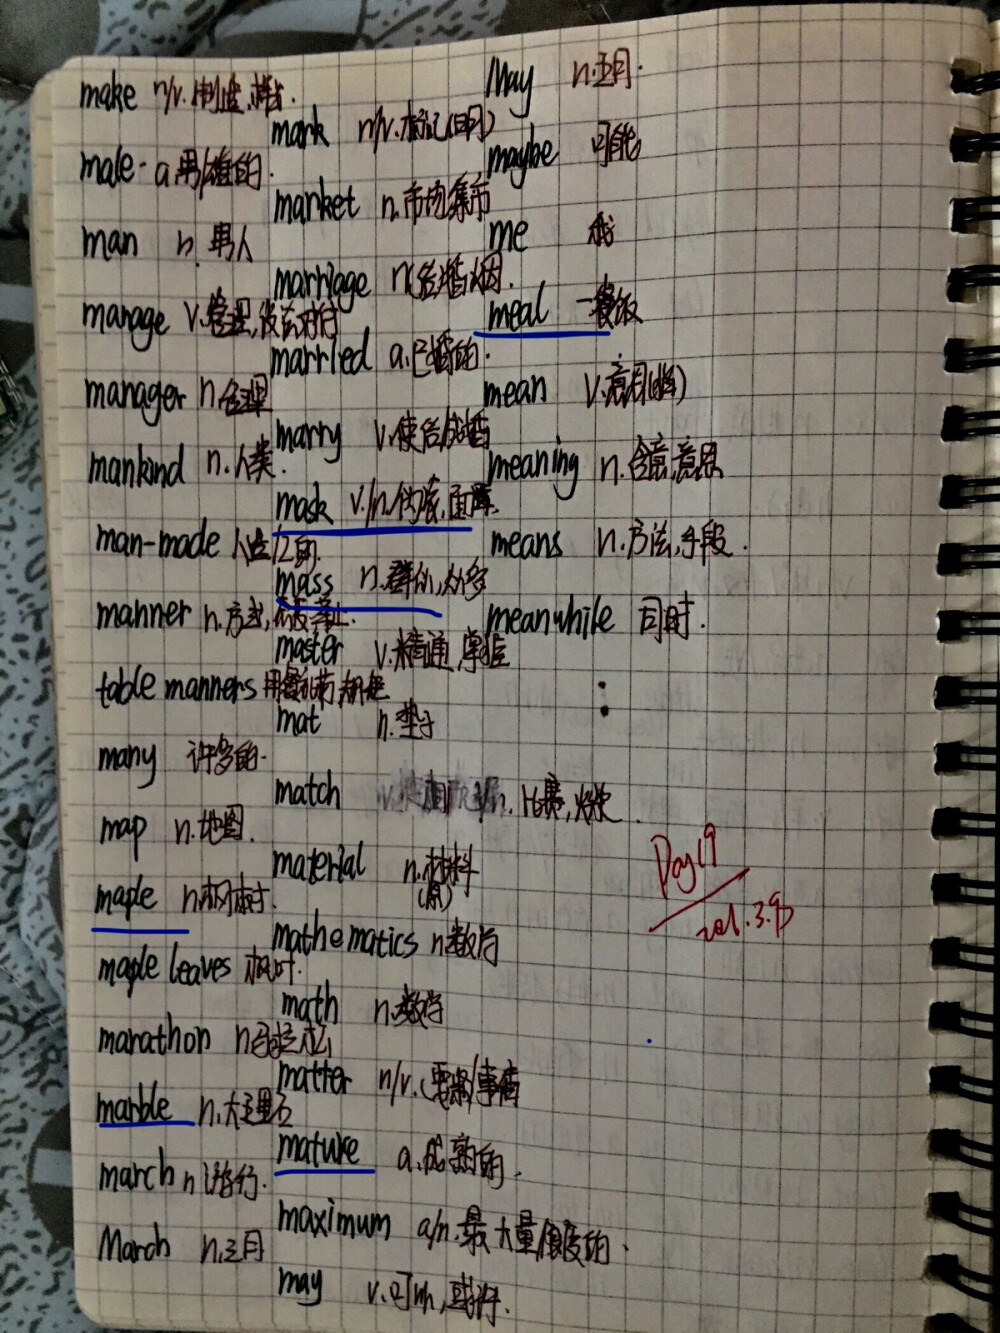 make n/v. 制造
male - a 男/雄的.
man n. 男人
manage v. 管理, 设法对付
manager n. 经理
mankind n. 人类.
man-made 人造的
manner n. 方式,
table manners 用餐礼节
many 许多的.
map n. 地图.
maple n. 枫树.
maple leaves 枫叶.
marathon n 马拉松
marble n. 大理石
march n 游行.
March n. 三月
mark n/v. 标记
market n. 市场,集市
marriage n 结婚,婚姻.
married a. 已婚的.
marry v. 使结成婚
mask v./n. 伪装, 面罩.
mass n. 群众, 众多
master v. 精通, 掌握
mat n. 垫子
match n. 比赛, 火柴.
material n. 材料
(原)
mathematics n 数学
math n. 数学
matter n/v. 要紧/事情
mature a. 成熟的.
maximum a/n. 最大量/限度的.
may v. 可以, 或许.
May n. 五月.
maybe 可能
me 我
meal 一餐饭
mean v. 意思
meaning n. 含意,意思
means n. 方法, 手段.
meanwhile 同时.
Day 19